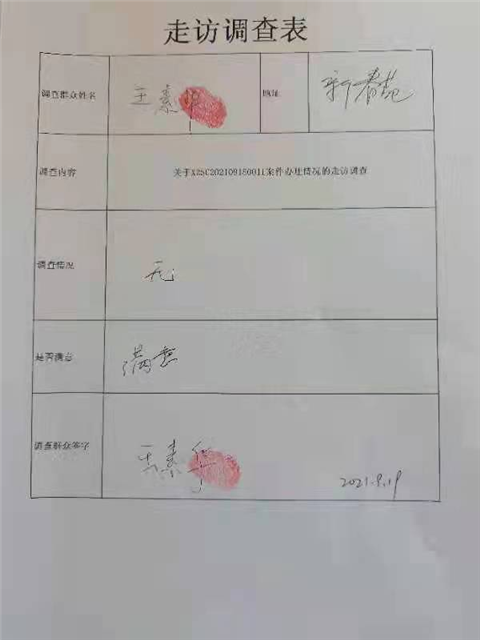 走访调查表
调查群众姓名 王素华 地址 新春苑
调查内容 关于X2SC202109180011案件办理情况的走访调查
调查情况 无
是否满意 满意
调查群众签字 王素华 2021.9.19